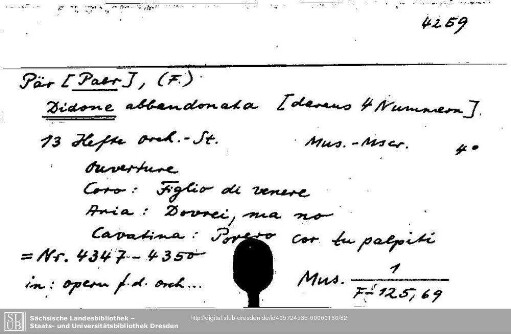 4259
Pär [Paer], (F.)
Didone abbandonata [daraus 4 Nummern].
13 Hefte Orch.-St. Mus.-Mscr. 4°
Ouverture
Coro: Figlio di venere
Aria: Dovrei, ma no
Cavatina: Povero cor tu palpiti
= Nr. 4347-4350
in: opern f. d. orch... Mus. 1
F 125,69
Sächsische Landesbibliothek –
Staats- und Universitätsbibliothek Dresden